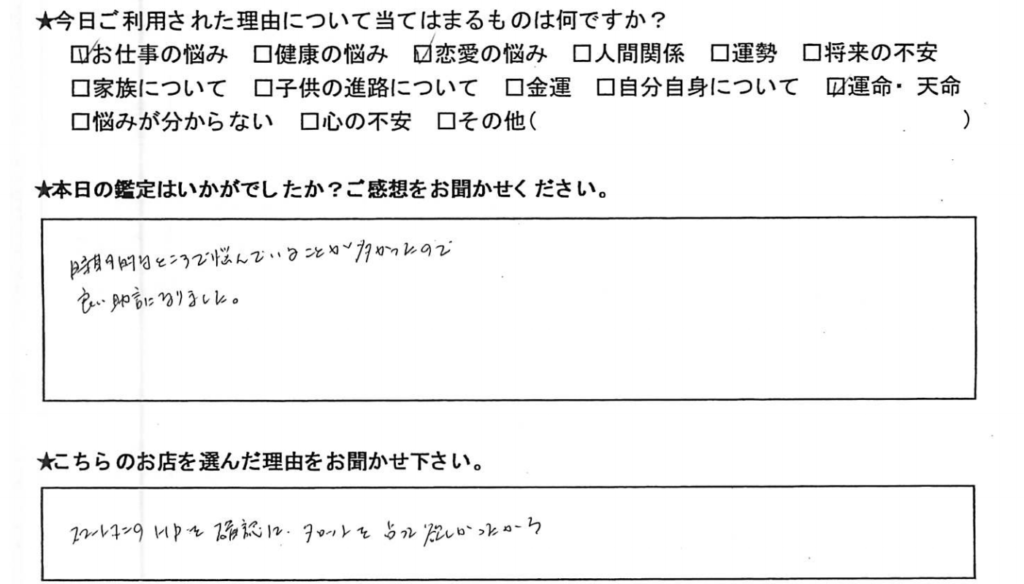 ★今日ご利用された理由について当てはまるものは何ですか？
☑お仕事の悩み □健康の悩み ☑恋愛の悩み □人間関係 □運勢 □将来の不安
□家族について □子供の進路について □金運 □自分自身について ☑運命・天命
□悩みが分からない □心の不安 □その他( )
★本日の鑑定はいかがでしたか？ご感想をお聞かせください。
時期的なところで悩んでいることが多かったので
良い助言になりました。
★こちらのお店を選んだ理由をお聞かせ下さい。
HPを確認し、タロットを占って欲しかったから